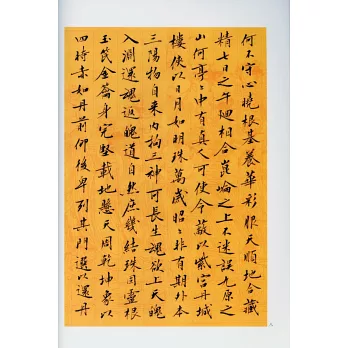 何不守心曉根基養華彩服天順地合藏
精七日之午廻相合崑崙之上不迷誤九原之
山何亭亭中有真人可使令蔽以紫宮丹城
樓俠以日月如明珠萬歲昭昭非有期外本
三陽物自来内拘三神可長生魂欲上天魄
入淵還魂返魄道自然庶幾結珠固靈根
玉笢金籥身完堅載地懸天周乾坤象以
四時赤如丹前仰後卑列其門選以還丹